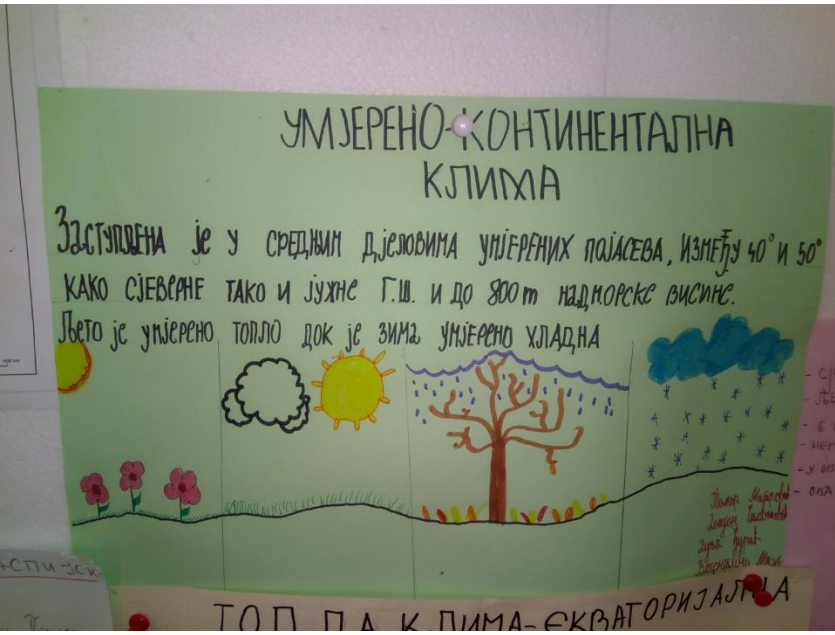 УМЈЕРЕНО-КОНТИНЕНТАЛНА
КЛИМА
Заступљена је у средњим дјеловима умјерених појасева, између 40° и 50°
како сјеверне тако и јужне Г.Ш. и до 800m надморске висине.
Љето је умјерено топло док је зима умјерено хладна
ТОПЛА КЛИМА-ЕКВАТОРИЈАЛНА